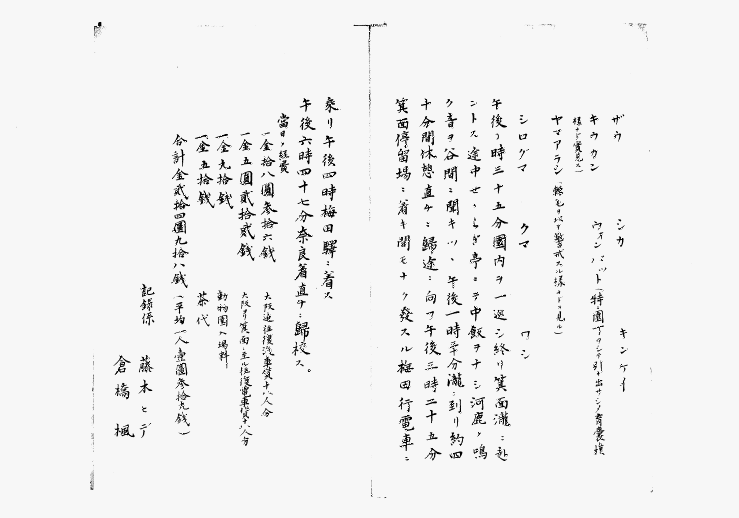 ザウ　シカ　キンケイ
キウカン　ウォンバット（特ニ園丁ヲシテ引キ出サシメ育嚢ヲ検
ヤマアラシ（棘毛ヲ以テ警戒スル様ナドヲ見ル）
シログマ　クマ　ワシ
午後〇時三十五分園内ヲ一巡シ終リ箕面瀧ニ赴
ントス途中せゝらぎ亭ニテ中飯ヲナシ河鹿ノ鳴
ク音ヲ谷間ニ聞キツヽ午後一時半分瀧ニ到リ約四
十分間休憩直チニ歸途ニ向フ午後三時二十五分
箕面停留場ニ着キ間モナク發スル梅田行電車ニ
乗リ午後四時梅田驛ニ着ス
午後六時四十七分奈良着直チニ歸校ス。
當日ノ経費
一金拾八圓参拾六錢　大阪迄往復汽車賃十八人分
一金五圓貳拾貳錢　大阪ヨリ箕面ニ至ル往復電車賃十八人分
一金九拾錢　動物園入場料
一金五拾錢　茶代
合計金貳拾四圓九拾八錢（平均一人壹圓参拾九錢）
記錄係　藤木ヒデ
倉橋楓